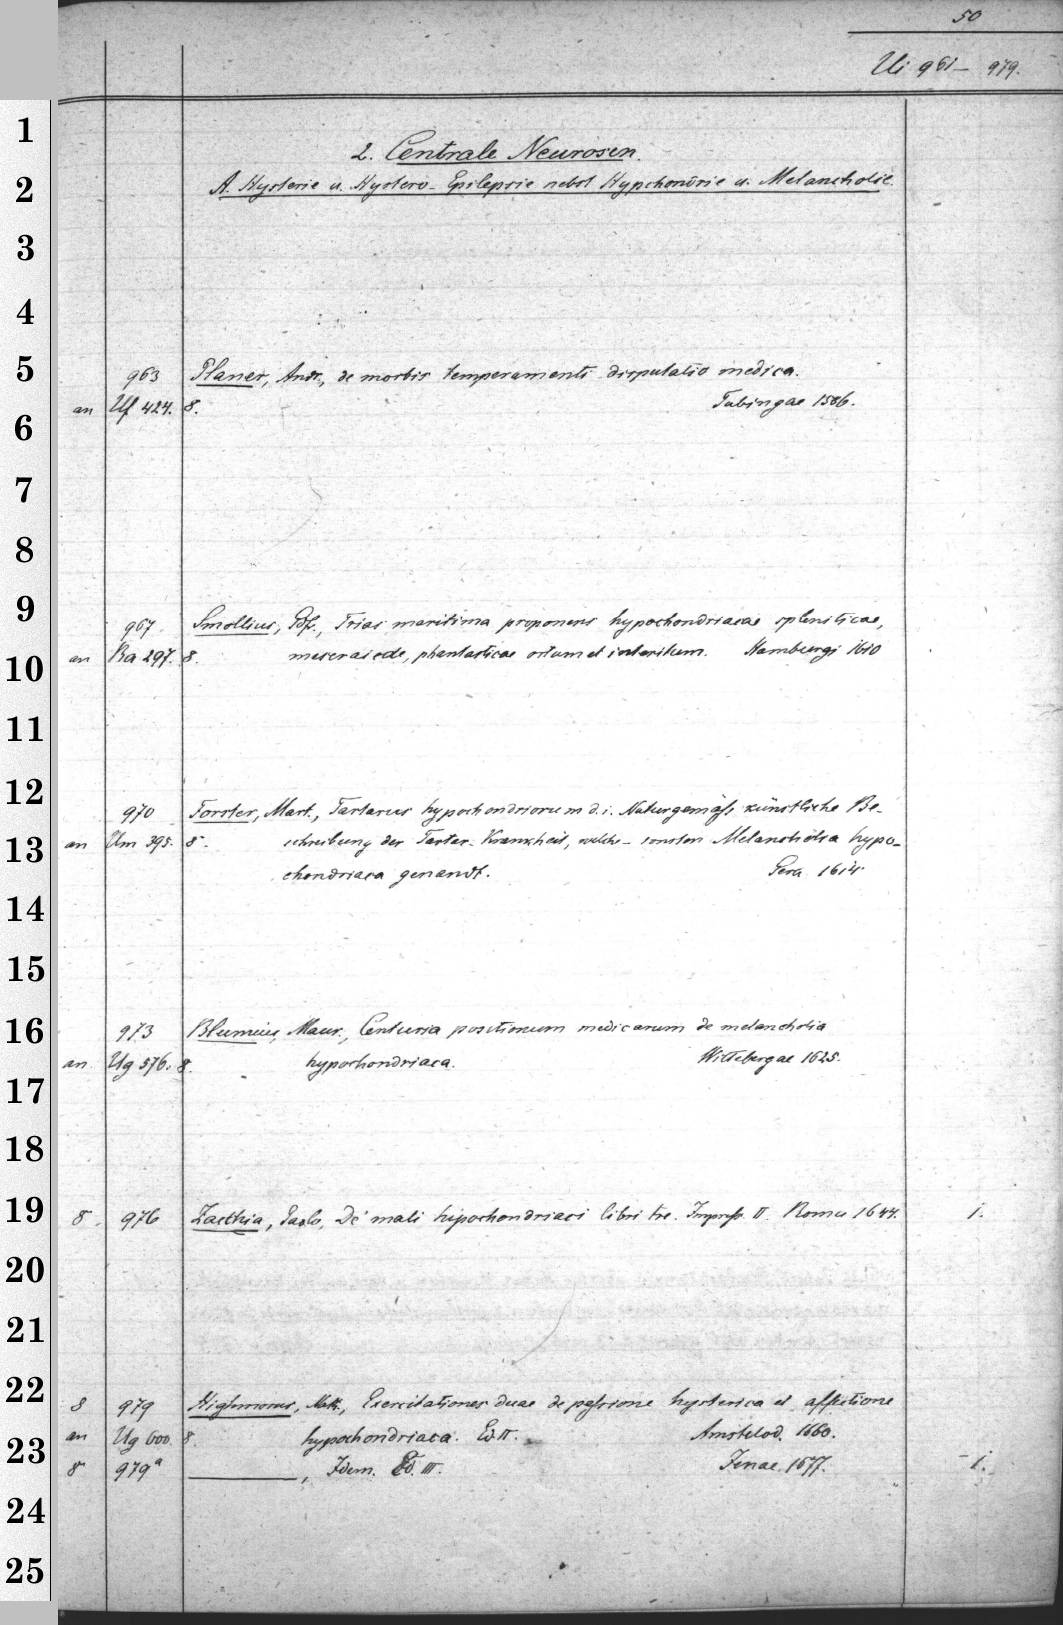 50
Ui 961 - 979.
1
2. Centrale Neurosen.
2
A. Hysterie u. Hystero-Epilepsie nebst Hypchondrie u. Melancholie.
3
4
5
963 Planer, Andr., de morbis temperamenti disputatio medica.
an Uf 424. 8. Tubingae 1586.
6
7
8
9
967. Smollius, Gdf., Trias maritima proponens hypochondriacae spleniticae,
an Ba 297. 8. meseraicae, phantasticae ortum et interitum. Hamburgi 1610
10
11
12
970 Forster, Mart., Tartarus hypochondriorum d.i. Naturgemäss künstliche Be-
13
an Um 395. 8. schreibung der Tarter-Krankheit, welche sonsten Melancholia hypo-
chondriaca genandt. Gera 1614.
14
15
16
973 Blumeius, Maur., Centuria positionum medicarum de melancholia
an Ug 576. 8. hypochondriaca. Wittebergae 1625.
17
18
19
8. 976 Zacchia, Paolo, De mali hipochondriaci libri tre. Impress. II. Roma 1644. 1.
20
21
22
8 979 Highmorus, Nath., Exercitationes duae de passione hysterica et affectione
an Ug 600. 8. hypochondriaca. Ed. II. Amstelod. 1660.
23
8 979a , Idem. Ed. III. Jenae. 1677. - 1.
24
25